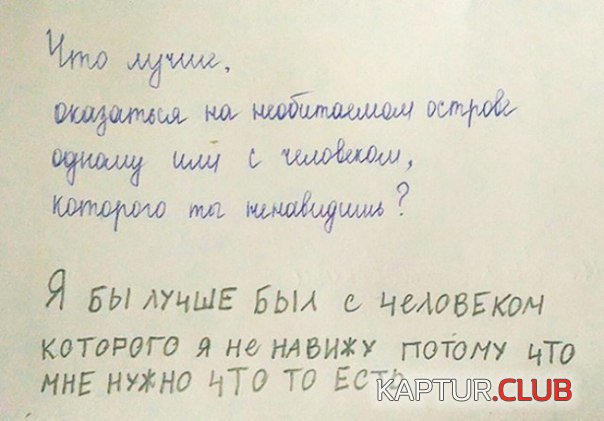 Что лучше,
оказаться на необитаемом острове
одному или с человеком,
которого ты ненавидишь?
Я БЫ ЛУЧШЕ БЫЛ С ЧЕЛОВЕКОМ
КОТОРОГО Я НЕ НАВИЖУ ПОТОМУ ЧТО
МНЕ НУЖНО ЧТО ТО ЕСТЬ
KAPTUR.CLUB